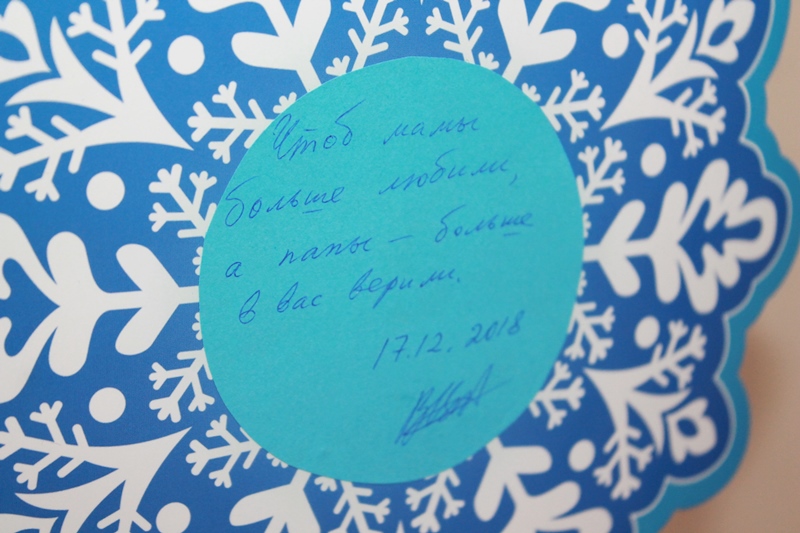 Чтоб мамы
больше любили,
а папы – больше
в вас верили.
17.12.2018